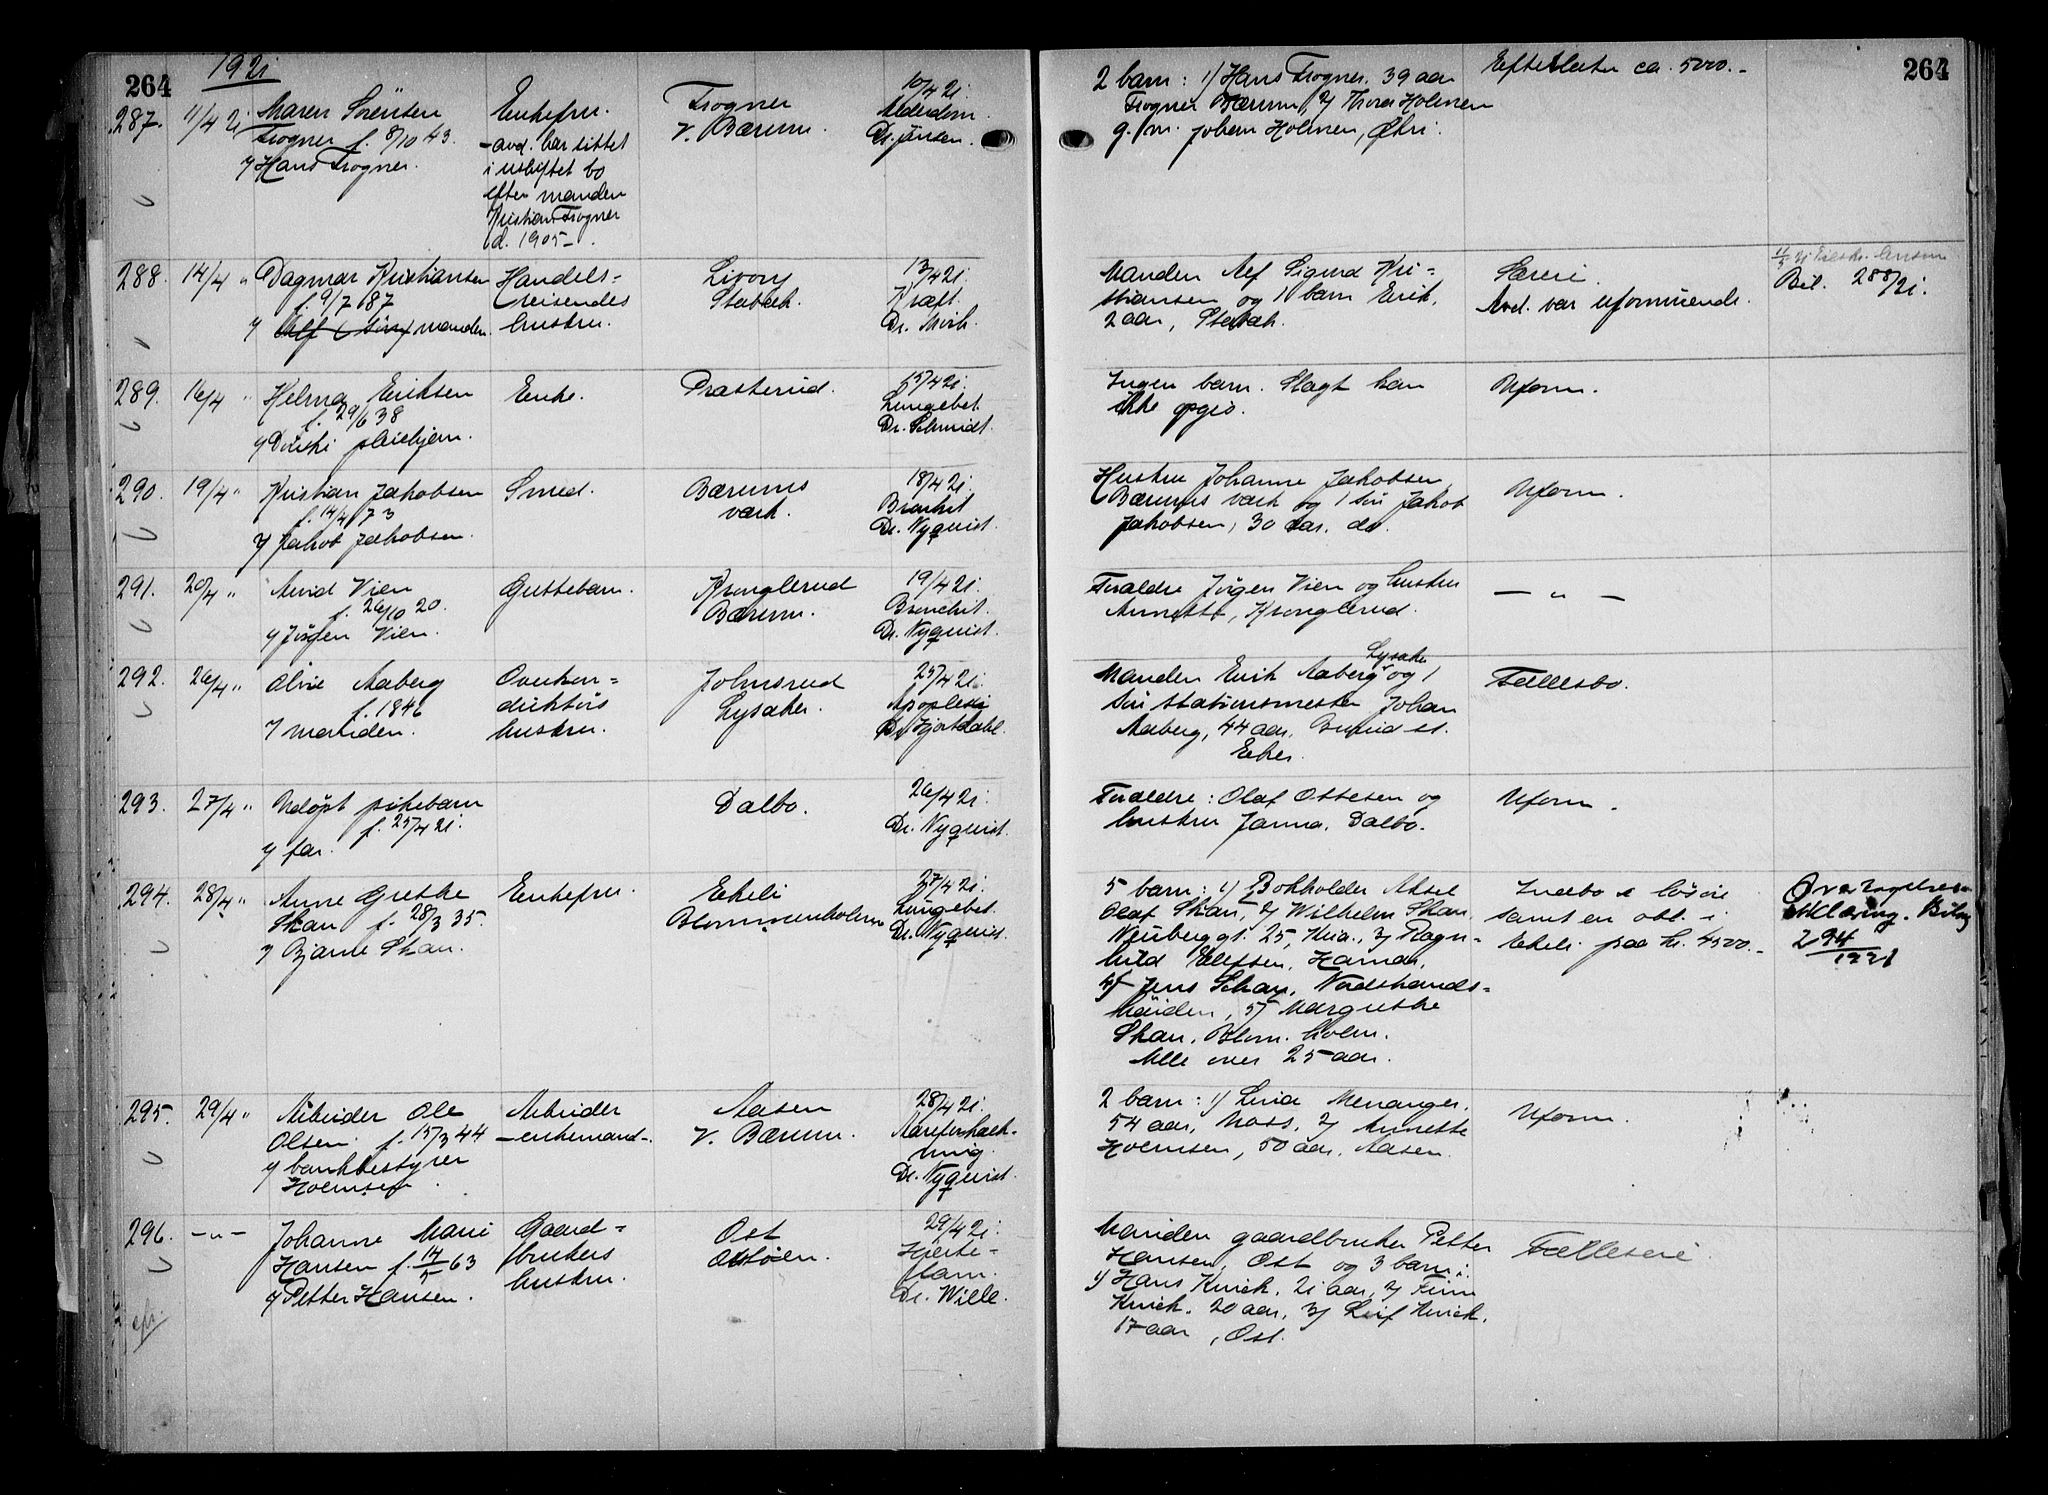 264
1921
287. 11/4 21 Maren Sørensen Enkefru. Frogner 10/4 21.
Frogner f. 8/10 43 - avd. har sittet V. Bærum. Alderdom.
v/ Hans Frogner. i uskiftet bo Dr. Jensen.
efter manden
Kristian Frogner
d. 1905 -.
288. 14/4 " Dagmar Kristiansen Handels- Livory 13/4 21.
f. 9/7 87 reisendes Stabæk. Kræft.
v/ manden. hustru. Dr.
289. 16/4 " Helma Eriksen Enke. Præsterud. 15/4 21.
f. 29/6 38 Lungebet.
v/ pleiehjem. Dr. Schmidt.
290. 19/4 " Kristian Jakobsen Smed. Bærums 18/4 21.
f. 14/4 73 værk. Bronchit
v/ Jakob Jakobsen. Dr. Nyquist.
291. 20/4 " Arvid Vien Guttebarn. Kronglerud 19/4 21.
f. 26/10 20. Bærum. Bronchit.
v/ Jørgen Vien. Dr. Nyquist.
292. 26/4 " Oline Aaberg Overkon- Johnsrud 25/4 21.
f. 1846 duktørs Lysaker. Apoplexi
v/ manden. hustru. Dr. Hjortdahl.
293. 27/4 " Udøpt pikebarn Dalbo. 26/4 21.
f. 25/4 21. Dr. Nyquist.
v/ far.
294. 28/4 " Anne Grethe Enkefru. Ekeli 27/4 21.
Skau f. 28/3 35. Blommenholm Lungebet.
v/ Bjarne Skau. Dr. Nyquist.
295. 29/4 " Arbeider Ole Arbeider Aasen 28/4 21.
Olsen f. 15/3 44 - enkemand -. V. Bærum. Aareforkalk-
v/ bankbestyrer ning.
Holmsen. Dr. Nyquist.
296. - " - Johanne Marie Gaard- Ost 29/4 21.
Hansen f. 14/5 63 brukers Østøen. Hjerte-
v/ Petter Hansen. hustru. lam.
Dr. Wille.
264
2 barn: 1/ Hans Frogner. 39 aar Efterlater ca. 5000.-
Frogner Bærum, 2/ Thora Holmen
g. m. Johan Holmen, Øhri.
Manden Alf Sigurd Kri- Særeie. Bil. 288/21.
stiansen og 1 barn Erik, Avd. var uformuende.
2 aar, Stabæk.
Ingen barn. Slægt kan Uform.
ikke opgis.
Hustru Johanne Jakobsen, Uform.
Bærums værk og 1 søn Jakob
Jakobsen, 30 aar. do.
Forældre Jørgen Vien og hustru - " -
Annette, Kronglerud.
Lysaker
Manden Erik Aaberg og 1 Fællesbo.
søn stationsmester Johan
Aaberg, 44 aar. st.
Eker.
Forældre: Olaf Ottesen og Uform.
hustru Janna. Dalbo.
5 barn: 1/ Bokholder Aksel Indbo & løsøre Overtagelses-
Olaf Skau, 2/ Wilhelm Skau samt en obl. i erklæring. Bilag
Neuberggt. 25, Kria., 3/ Ragn- Ekeli paa kr. 4500.- 294/1921
hild Ellefsen, Hamar.
4/ Jens Skau, Nordstrands-
høiden, 5/ Margrethe
Skau, Blom. holm.
Alle over 25 aar.
2 barn: 1/ Lina Menanger. Uform.
54 aar, Moss. 2/ Annette
Holmsen, 50 aar. Aasen.
Manden gaardbruker Petter Fælleseie
Hansen, Ost og 3 barn:
1/ Hans Kinck. 21 aar, 2/ Finn
Kinck. 20 aar, 3/ Leif Kinck.
17 aar, Ost.